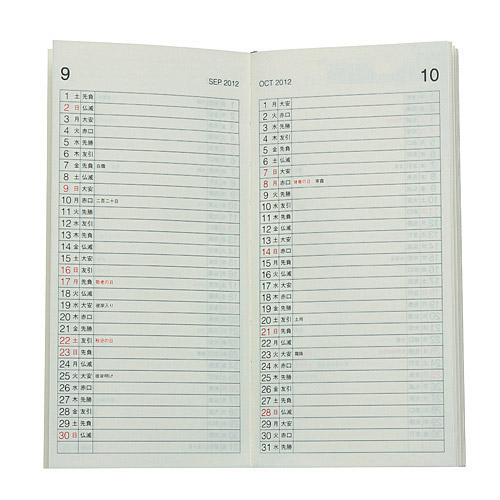 9
SEP 2012
1 土 先負
2 日 仏滅
3 月 大安
4 火 赤口
5 水 先勝
6 木 友引
7 金 先負 白露
8 土 仏滅
9 日 大安
10 月 赤口 二百二十日
11 火 先勝
12 水 友引
13 木 先負
14 金 仏滅
15 土 大安
16 日 友引
17 月 先負 敬老の日
18 火 仏滅
19 水 大安 彼岸入り
20 木 赤口
21 金 先勝
22 土 友引 秋分の日
23 日 先負
24 月 仏滅
25 火 大安 彼岸明け
26 水 赤口
27 木 先勝
28 金 友引
29 土 先負
30 日 仏滅
OCT 2012
10
1 月 大安
2 火 赤口
3 水 先勝
4 木 友引
5 金 先負
6 土 仏滅
7 日 大安
8 月 赤口 体育の日 寒露
9 火 先勝
10 水 友引
11 木 先負
12 金 仏滅
13 土 大安
14 日 赤口
15 月 先負
16 火 仏滅
17 水 大安
18 木 赤口
19 金 先勝
20 土 友引 土用
21 日 先負
22 月 仏滅
23 火 大安 霜降
24 水 赤口
25 木 先勝
26 金 友引
27 土 先負
28 日 仏滅
29 月 大安
30 火 赤口
31 水 先勝